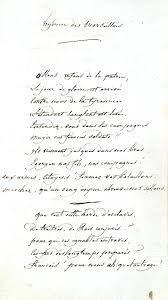 Hymne des Marseillais
Allons enfans de la patrie,
Le jour de gloire est arrivé
Contre nous de la tyrannie
L'étendart sanglant est levé,
Entendez-vous dans les campagnes
mugir ces féroces soldats
ils viennent jusques dans nos bras
Egorger nos fils, nos compagnes!
aux armes, citoyens! formez vos bataillons.
marchez, qu'un sang impur abreuve nos sillons.
Que veut cette horde d'esclaves,
De traitres, de Rois conjurés?
pour qui ces ignobles entraves,
Ces fers dès longtemps préparés
français! pour nous ah quel outrage!